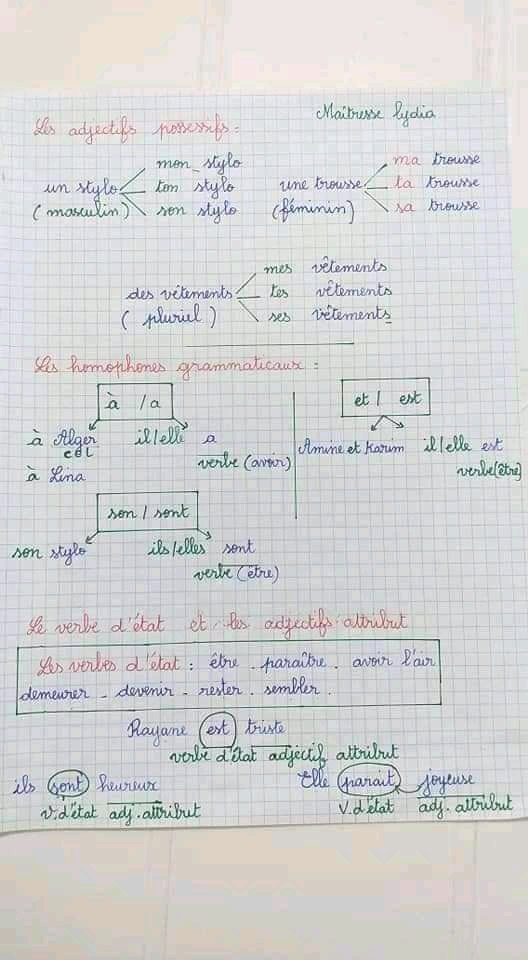 Maîtresse lydia
Les adjectifs possessifs :
mon stylo
un stylo ton stylo
(masculin) son stylo
ma trousse
une trousse ta trousse
(féminin) sa trousse
mes vêtements
des vêtements tes vêtements
(pluriel) ses vêtements
Les homophones grammaticaux :
à / a
à Alger il/elle a
verbe (avoir)
à Lina
et / est
Amine et Karim il/elle est
verbe (être)
son / sont
son stylo ils/elles sont
verbe (être)
Le verbe d'état et les adjectifs attribut
Les verbes d'état : être . paraître . avoir l'air
demeurer - devenir - rester . sembler .
Rayane est triste
verbe d'état adjectif attribut
ils sont heureux
v.d'état adj. attribut
Elle parait joyeuse
V.d'état adj. attribut